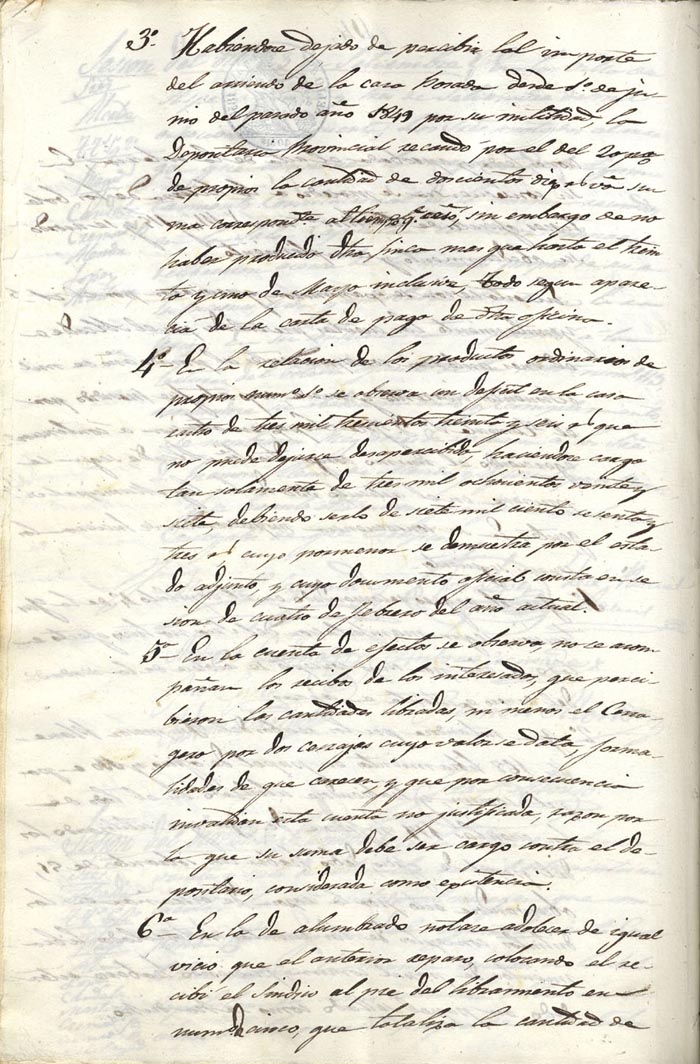 3º Habiendose dejado de percibir el importe
del arriendo de la casa Horada desde 1º de ju-
nio del pasado año 1849 por su inutilidad, la
Depositaria Provincial recaudó por el del 20 p%
de propios la cantidad de doscientos diez r.s v.n su-
ma correspond.te al tiempo q.e cesó, sin embargo de no
haber producido dha finca mas que hasta el trein-
ta y uno de Mayo inclusive, todo segun apare-
cia de la carta de pago de dha oficina.
4º En la relacion de los productos ordinarios de
propios num.º 1º se observa un deficit en la casa
de tres mil trescientos treinta y seis r.s que
no puede dejarse desapercibido, haciendose cargo
tan solamente de tres mil ochocientos veinte y
siete, debiendo serlo de siete mil ciento sesenta y
tres r.s cuyo pormenor se demuestra por el esta-
do adjunto, y cuyo documento oficial consta en se-
sion de cuatro de Febrero del año actual.
5ª En la cuenta de efectos se observa, no se acom-
pañan los recibos de los interesados, que perci-
bieron las cantidades libradas, ni menos el Cerra-
gero por dos cerrajas cuyo valor se data, forma-
lidades de que carecen, y que por consecuencia
invalidan esta cuenta no justificada, razon por
la que su suma debe ser cargo contra el de-
positario, considerada como existencia.
6ª En la de alumbrado notase adolecer de igual
vicio que el anterior reparo, colocando el re-
cibí el Sindico al pie del libramiento en
num.º cinco, que totaliza la cantidad de